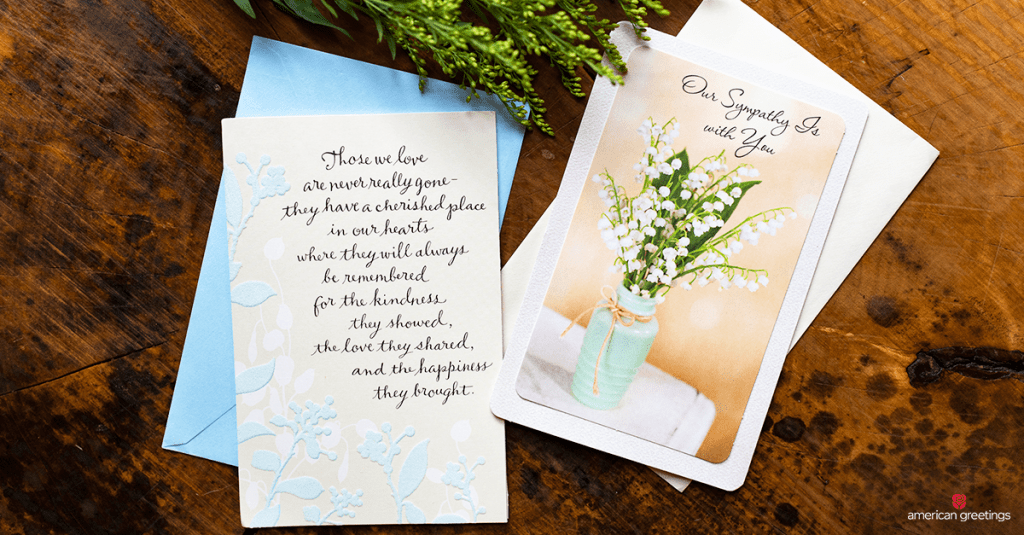 Those we love
are never really gone–
they have a cherished place
in our hearts
where they will always
be remembered
for the kindness
they showed,
the love they shared,
and the happiness
they brought.
Our Sympathy Is
with You
american greetings